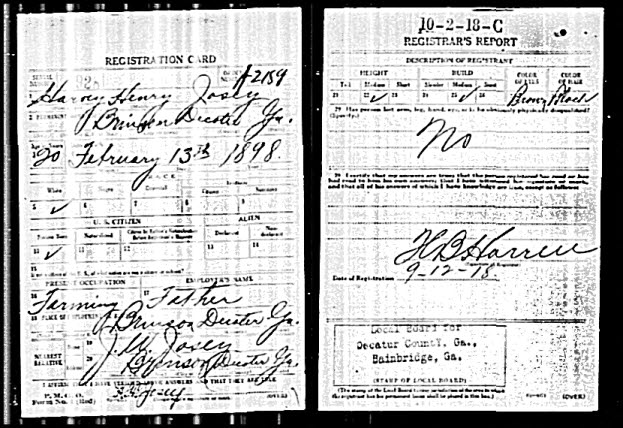 REGISTRATION CARD
A2159
Harvey Henry Josey
Brinson Decatur Ga.
20 February 13th 1898
White
Negro
Oriental
5 ✓ 6 7 8
U. S. CITIZEN
ALIEN
Native Born
Naturalized
Declarant
Non-declarant
10 ✓ 11 12 13 14
15
PRESENT OCCUPATION
EMPLOYER'S NAME
16 Farming 17 Father
Brinson Decatur Ga.
J. W. Josey
NEAREST RELATIVE
Brinson Decatur Ga.
P. M. G. O.
Form No. 1 (Red)
(OVER)
10-2-18-C
REGISTRAR'S REPORT
DESCRIPTION OF REGISTRANT
HEIGHT
BUILD
COLOR OF EYES
COLOR OF HAIR
Tall
Medium
Short
Slender
Medium
Stout
21 22 ✓ 23 24 25 ✓ 26
Brown
Black
29. Has person lost arm, leg, hand, eye, or is he obviously physically disqualified?
(Specify.)
No
30. I certify that my answers are true; that the person registered has read or has had read to him his own answers; that I have witnessed his signature or mark, and that all of his answers of which I have knowledge are true, except as follows:
H B Harrell
Date of Registration 9-12-18
Local Board for
Decatur County, Ga.,
Bainbridge, Ga.
(STAMP OF LOCAL BOARD)
(The stamp of the Local Board having jurisdiction of the area in which the registrant has his permanent home shall be placed in this box.)
(OVER)